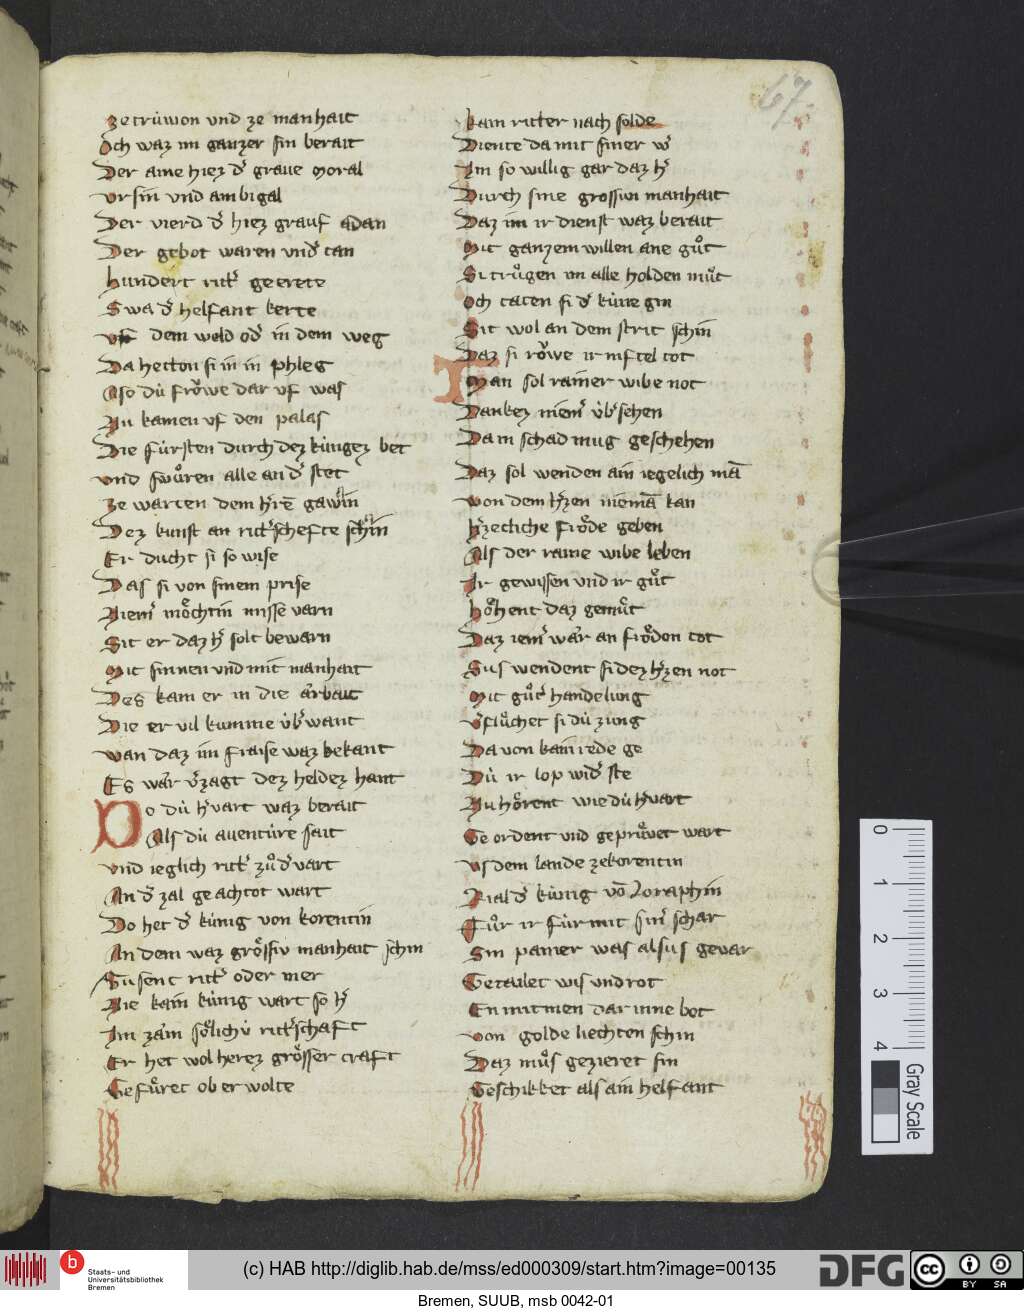 67
ze trúwon vnd ze manhait
Och waz im ganzer sin berait
Der aine hiez dˢ graue moral
vrsin vnd ambigal
Der vierd dˢ hiez grauf adan
Der gebot waren vndˢ tan
hundert rittˢ geerete
Swa dˢ helfant kerte
vf dem wald odˢ in dem weg
Da hetton si in in phleg
Also dú froͮwe dar vf was
Nu kamen vf den palas
Die fúrsten durch dez kúngez bet
vnd swuͦren alle an dˢ stet
ze warten dem hˢrē gawin
Dez kunst an rittˢschefte schin
Er ducht si so wise
Das si von sinem prise
Niemˢ moͤchtin misse varn
Sit er daz hˢ solt bewarn
Mit sinnen vnd mit manhait
Des kam er in die arbait
Die er vil kumme úbˢwant
wan daz im fraise waz bekant
Es waͤr vˢzagt dez heldez hant
Do dú hˢvart waz berait
Als dú auentúre sait
vnd ieglich rittˢ zuͦ dˢ vart
An dˢ zal geachtot wart
Do het dˢ kúnig von korentin
An dem waz groͤssiv manhait schin
Tusent rittˢ oder mer
Nie kain kúnig wart so hˢ
Im zaͤm soͤlichú rittˢschaft
Er het wol herez groͤsser craft
Gefuͤret ob er wolte
kain ritter nach solde
Diente da mit siner wˢ
Im so willig gar daz hˢ
Durch sine grossivi manhait
Daz im ir dienst waz berait
Mit ganzem willen ane guͦt
Si truͦgen im alle holden muͦt
Och taten si dˢ kúnegin
Sit wol an dem strit schin
Daz si roͮwe ir niftel tot
Man sol rainer wibe not
Dankez niemˢ úbˢsehen
Da m schad mug geschehen
Daz sol wenden ain iegelich mā
von dem hˢzen niemā kan
hˢzecliche froͤde geben
Als der raine wibe leben
Ir gewissen vnd ir guͦt
hoͤhent daz gemuͤt
Daz iemˢ waͤr an froͤdon tot
Sus wendent si dez hˢzen not
Mit guͦtˢ handelung
vˢfluͦchet si dú zung
Da von kain rede ge
Dú ir lop widˢ ste
Nu hoͤrent wie dú hˢvart
Geordent vnd gepruͤvet wart
vs dem lande ze korentin
Rial dˢ kúnig vō Loraphin
Fuͦr ir fúr mit sinˢ schar
Sin paner was alsus gevar
Getailet wis vnd rot
Enmitmen dar inne bot
von golde liechten schin
Daz muͦs gezieret sin
Geschikket als ain helfant
0
1
2
3
4
Gray Scale
b
Staats- und
Universitätsbibliothek
Bremen
(c) HAB http://diglib.hab.de/mss/ed000309/start.htm?image=00135
DFG
cc
BY SA
Bremen, SUUB, msb 0042-01